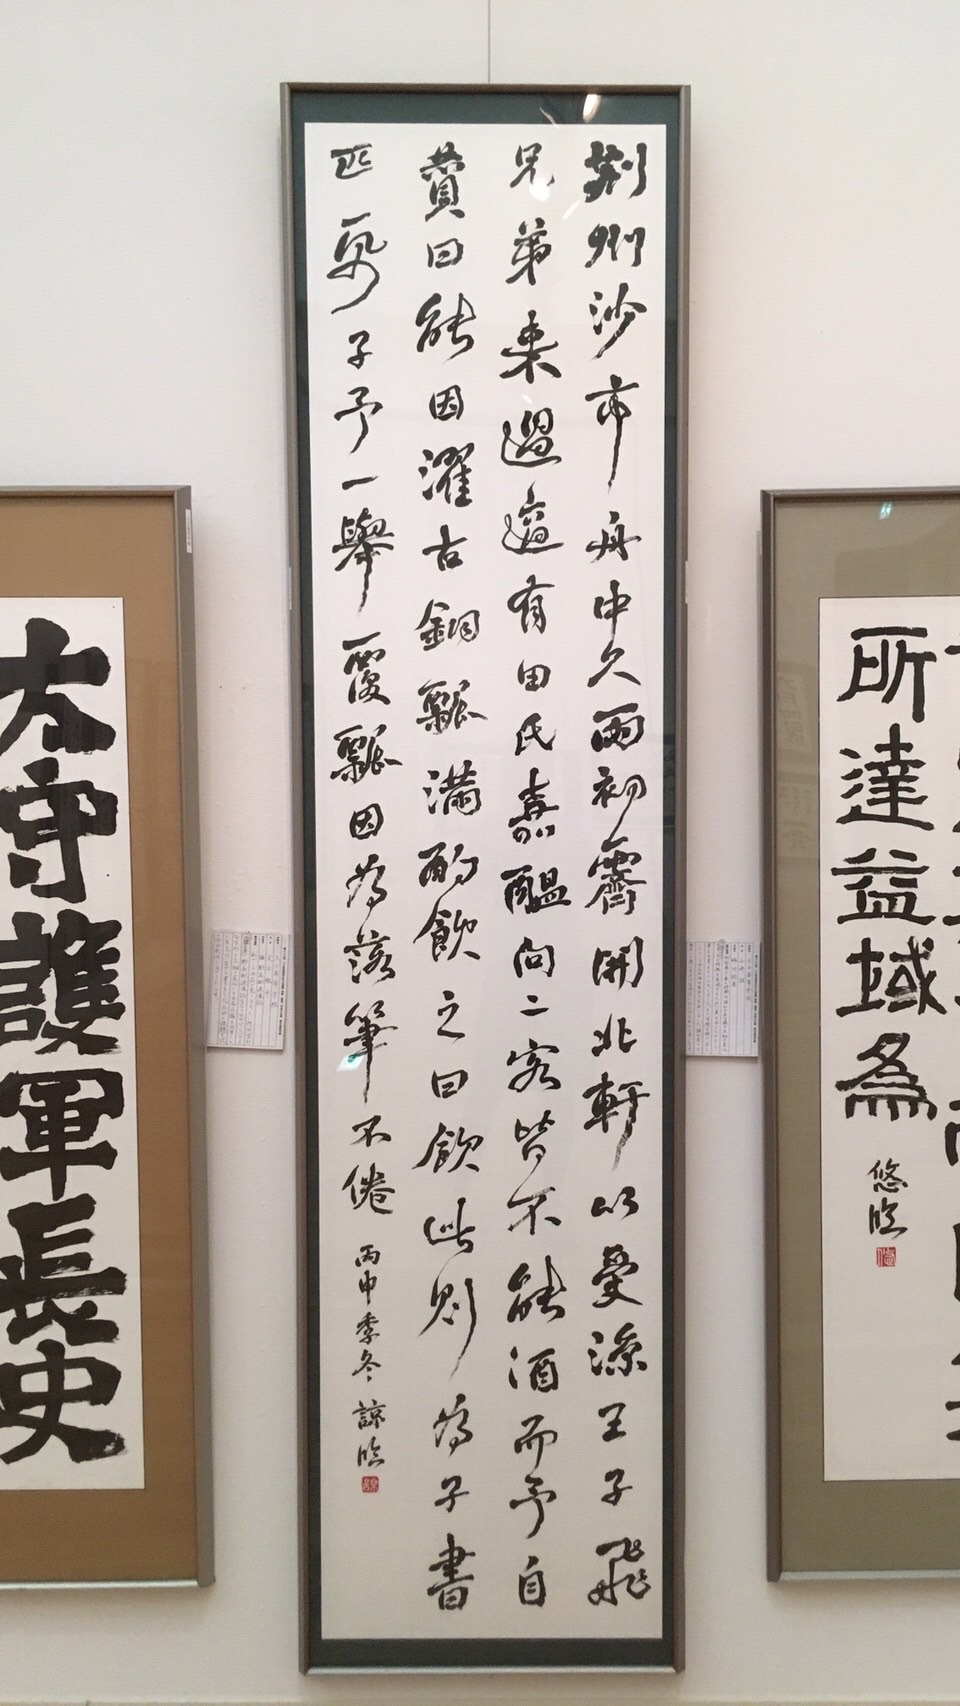 荆州沙市舟中久雨初霽開北軒以受涼王子飛
兄弟來過適有田氏嘉醖問二客皆不能酒而予自
贊曰能因濯古銅瓢滿酌飲之曰飲此則為子書
匹子予一舉覆瓢因為落筆不倦 丙申季冬 諒臨
所達益域為 悠臨
太守護軍長史